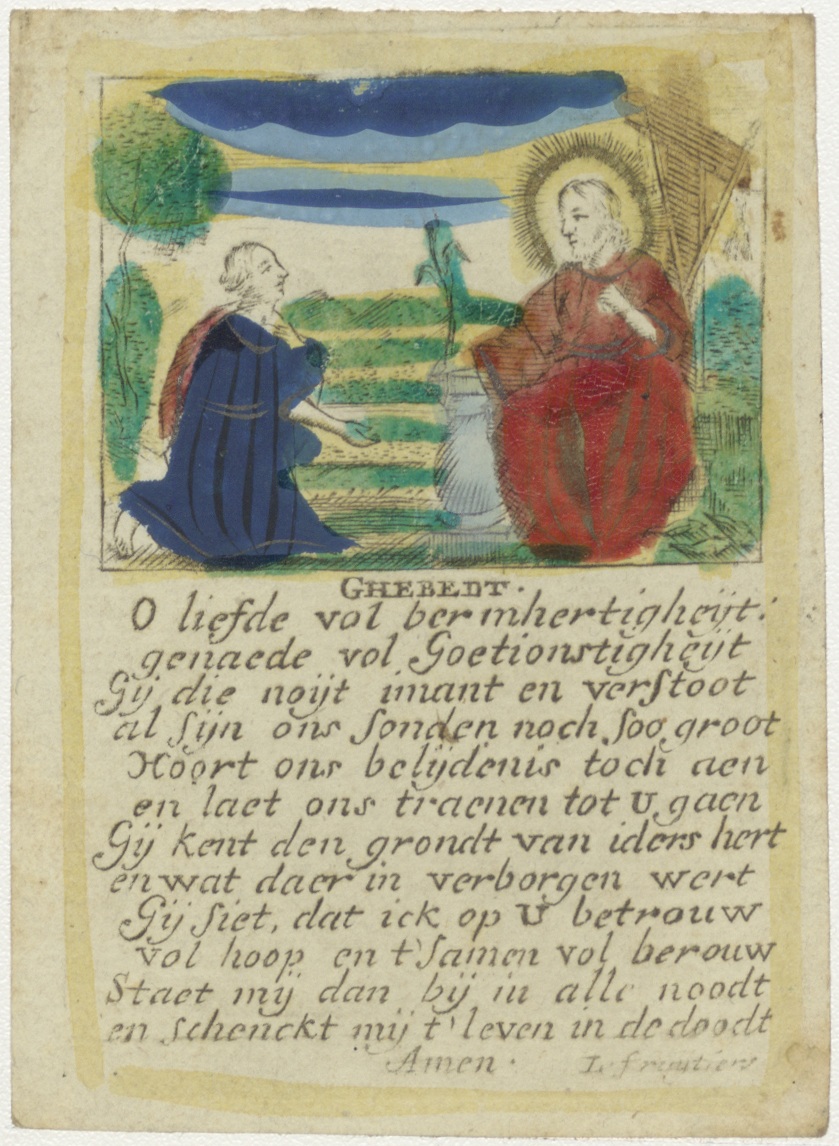 GHEBEDT.
O liefde vol bermhertigheijt:
genaede vol Goetionstigheijt
Gij die noijt imant en verſtoot
al ſijn ons ſonden noch ſoo groot
Hoort ons belijdenis toch aen
en laet ons traenen tot U gaen
Gij kent den grondt van iders hert
en wat daer in verborgen wert
Gij ſiet, dat ick op U betrouw
vol hoop en t'ſamen vol berouw
Staet mij dan bij in alle noodt
en ſchenckt mij t'leven in de doodt
Amen.
L. fruijtiers